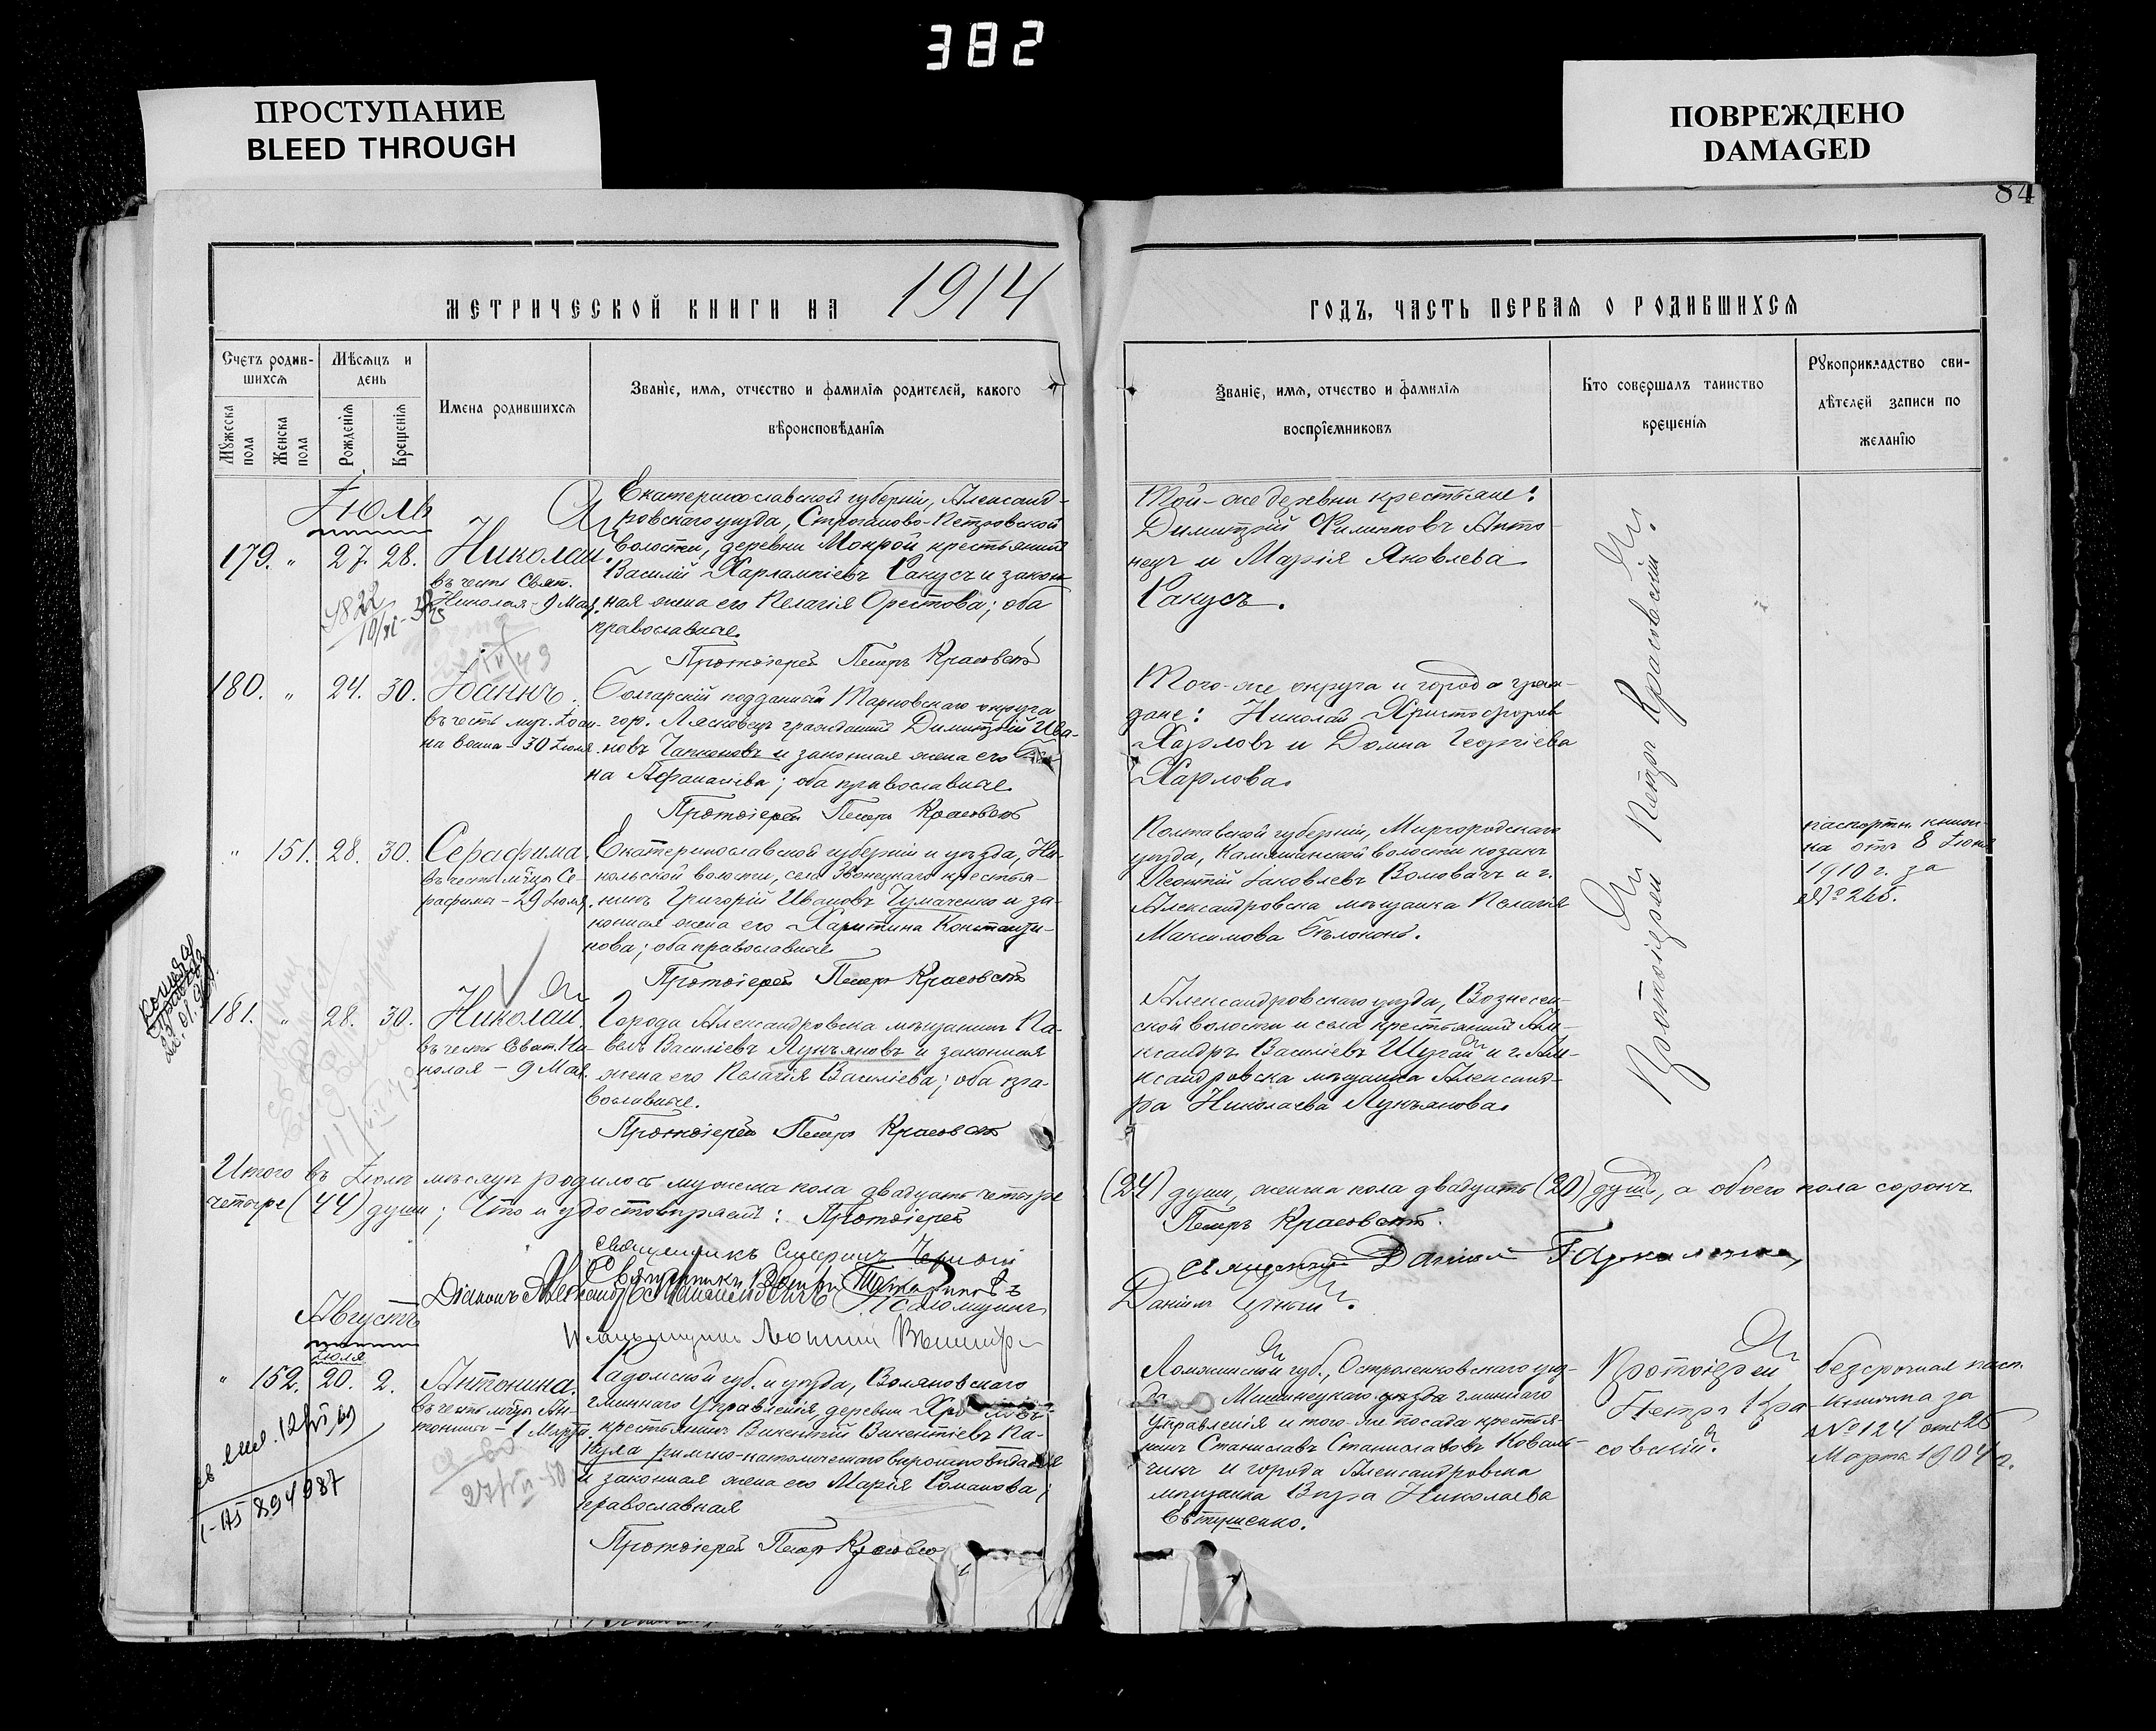 382
ПРОСТУПАНИЕ
BLEED THROUGH
ПОВРЕЖДЕНО
DAMAGED
84
МЕТРИЧЕСКОЙ КНИГИ НА 1914
ГОДЪ, ЧАСТЬ ПЕРВАЯ О РОДИВШИХСЯ
Счетъ родив-
шихся
Мѣсяцъ и
день
Имена родившихся
Званіе, имя, отчество и фамилія родителей, какого
вѣроисповѣданія
Мужеска
пола
Женска
пола
Рожденія
Крещенія
Званіе, имя, отчество и фамилія
воспріемниковъ
Кто совершалъ таинство
крещенія
Рукоприкладство сви-
дѣтелей записи по
желанію
Іюль
179. " 27. 28. Николай.
въ честь Свят.
Николая – 9 Мая.
Екатеринославской губерніи, Александ-
ровскаго уѣзда, Строганово-Петровской
волости, деревни Мокрой крестьянинъ
Василій Харлампіевъ Ганусъ и закон-
ная жена его Пелагія Орестова; оба
православные.
Протоіерей Петръ Красовскій
Той-же деревни крестьяне:
Димитрій Филипповъ Анто-
нец и Марія Яковлева
Ганусъ.
180. " 24. 30. Іоаннъ.
въ честь муч. Іоан-
на воина – 30 Іюля.
Болгарскій подданный Тарновскаго округа
гор. Лясковецъ гражданинъ Димитрій Ива-
новъ Чапкановъ и законная жена его
на Афанасіева; оба православные.
Протоіерей Петръ Красовскій
Того-же округа и города граж-
дане: Николай Христофоровъ
Харловъ и Домна Георгіева
Харлова.
" 151. 28. 30. Серафима.
въ честь м-цы Се-
рафимы – 29 Іюля.
Екатеринославской губерніи и уѣзда, Ни-
кольской волости, села Звонецкаго крестья-
нинъ Григорій Ивановъ Чумаченко и за-
конная жена его Харитина Константи-
нова; оба православные
Протоіерей Петръ Красовскій
Полтавской губерніи, Миргородскаго
уѣзда, Камышанской волости козакъ
Леонтій Іаковлевъ Воловачъ и г.
Александровска мѣщанка Пелагія
Максимова Бѣлоконь.
паспортн. книж-
ка отъ 8 Іюня
1910 г. за
№ 246.
181. " 28. 30. Николай.
въ честь Свят. Ни-
колая – 9 Мая.
Города Александровска мѣщанинъ Па-
велъ Василіевъ Лукъяновъ и законная
жена его Пелагія Василіева; оба пра-
вославные.
Протоіерей Петръ Красовскій
Александровскаго уѣзда, Вознесен-
ской волости и села крестьянинъ Але-
ксандръ Василіевъ Шугай и г. Але-
ксандровска мѣщанка Александ-
ра Николаева Лукъянова.
Протоіерей Петръ Красовскій.
Итого въ Іюлѣ мѣсяцѣ родилось мужеска пола двадцать четыре
(24) души, женска пола двадцать (20) душъ, а обоего пола сорокъ
четыре (44) души; Что и удостовѣряемъ: Протоіерей
Петръ Красовскій.
Псаломщикъ
Августъ
Іюля
" 152. 20. 2. Антонина.
въ честь м-цы Ан-
тонины – 1 Марта.
Радомской губ. и уѣзда, Воляновскаго
гминнаго Управленія, деревни
крестьянинъ Викентій Викентіевъ Па-
кула римско-католическаго вѣроисповѣданія
и законная жена его Марія Романова;
православная
Протоіерей Петръ Красовскій
Ломжинской губ., Остроленковскаго уѣз-
да Мышинецкаго гминнаго
Управленія и того-же посада крестья-
нинъ Станиславъ Станиславовъ Коваль-
чикъ и города Александровска
мѣщанка Вѣра Николаева
Евтушенко.
Протоіерей
Петръ Кра-
совскій.
безсрочная пасп.
книжка за
№ 124 отъ 26
Марта 1904 г.